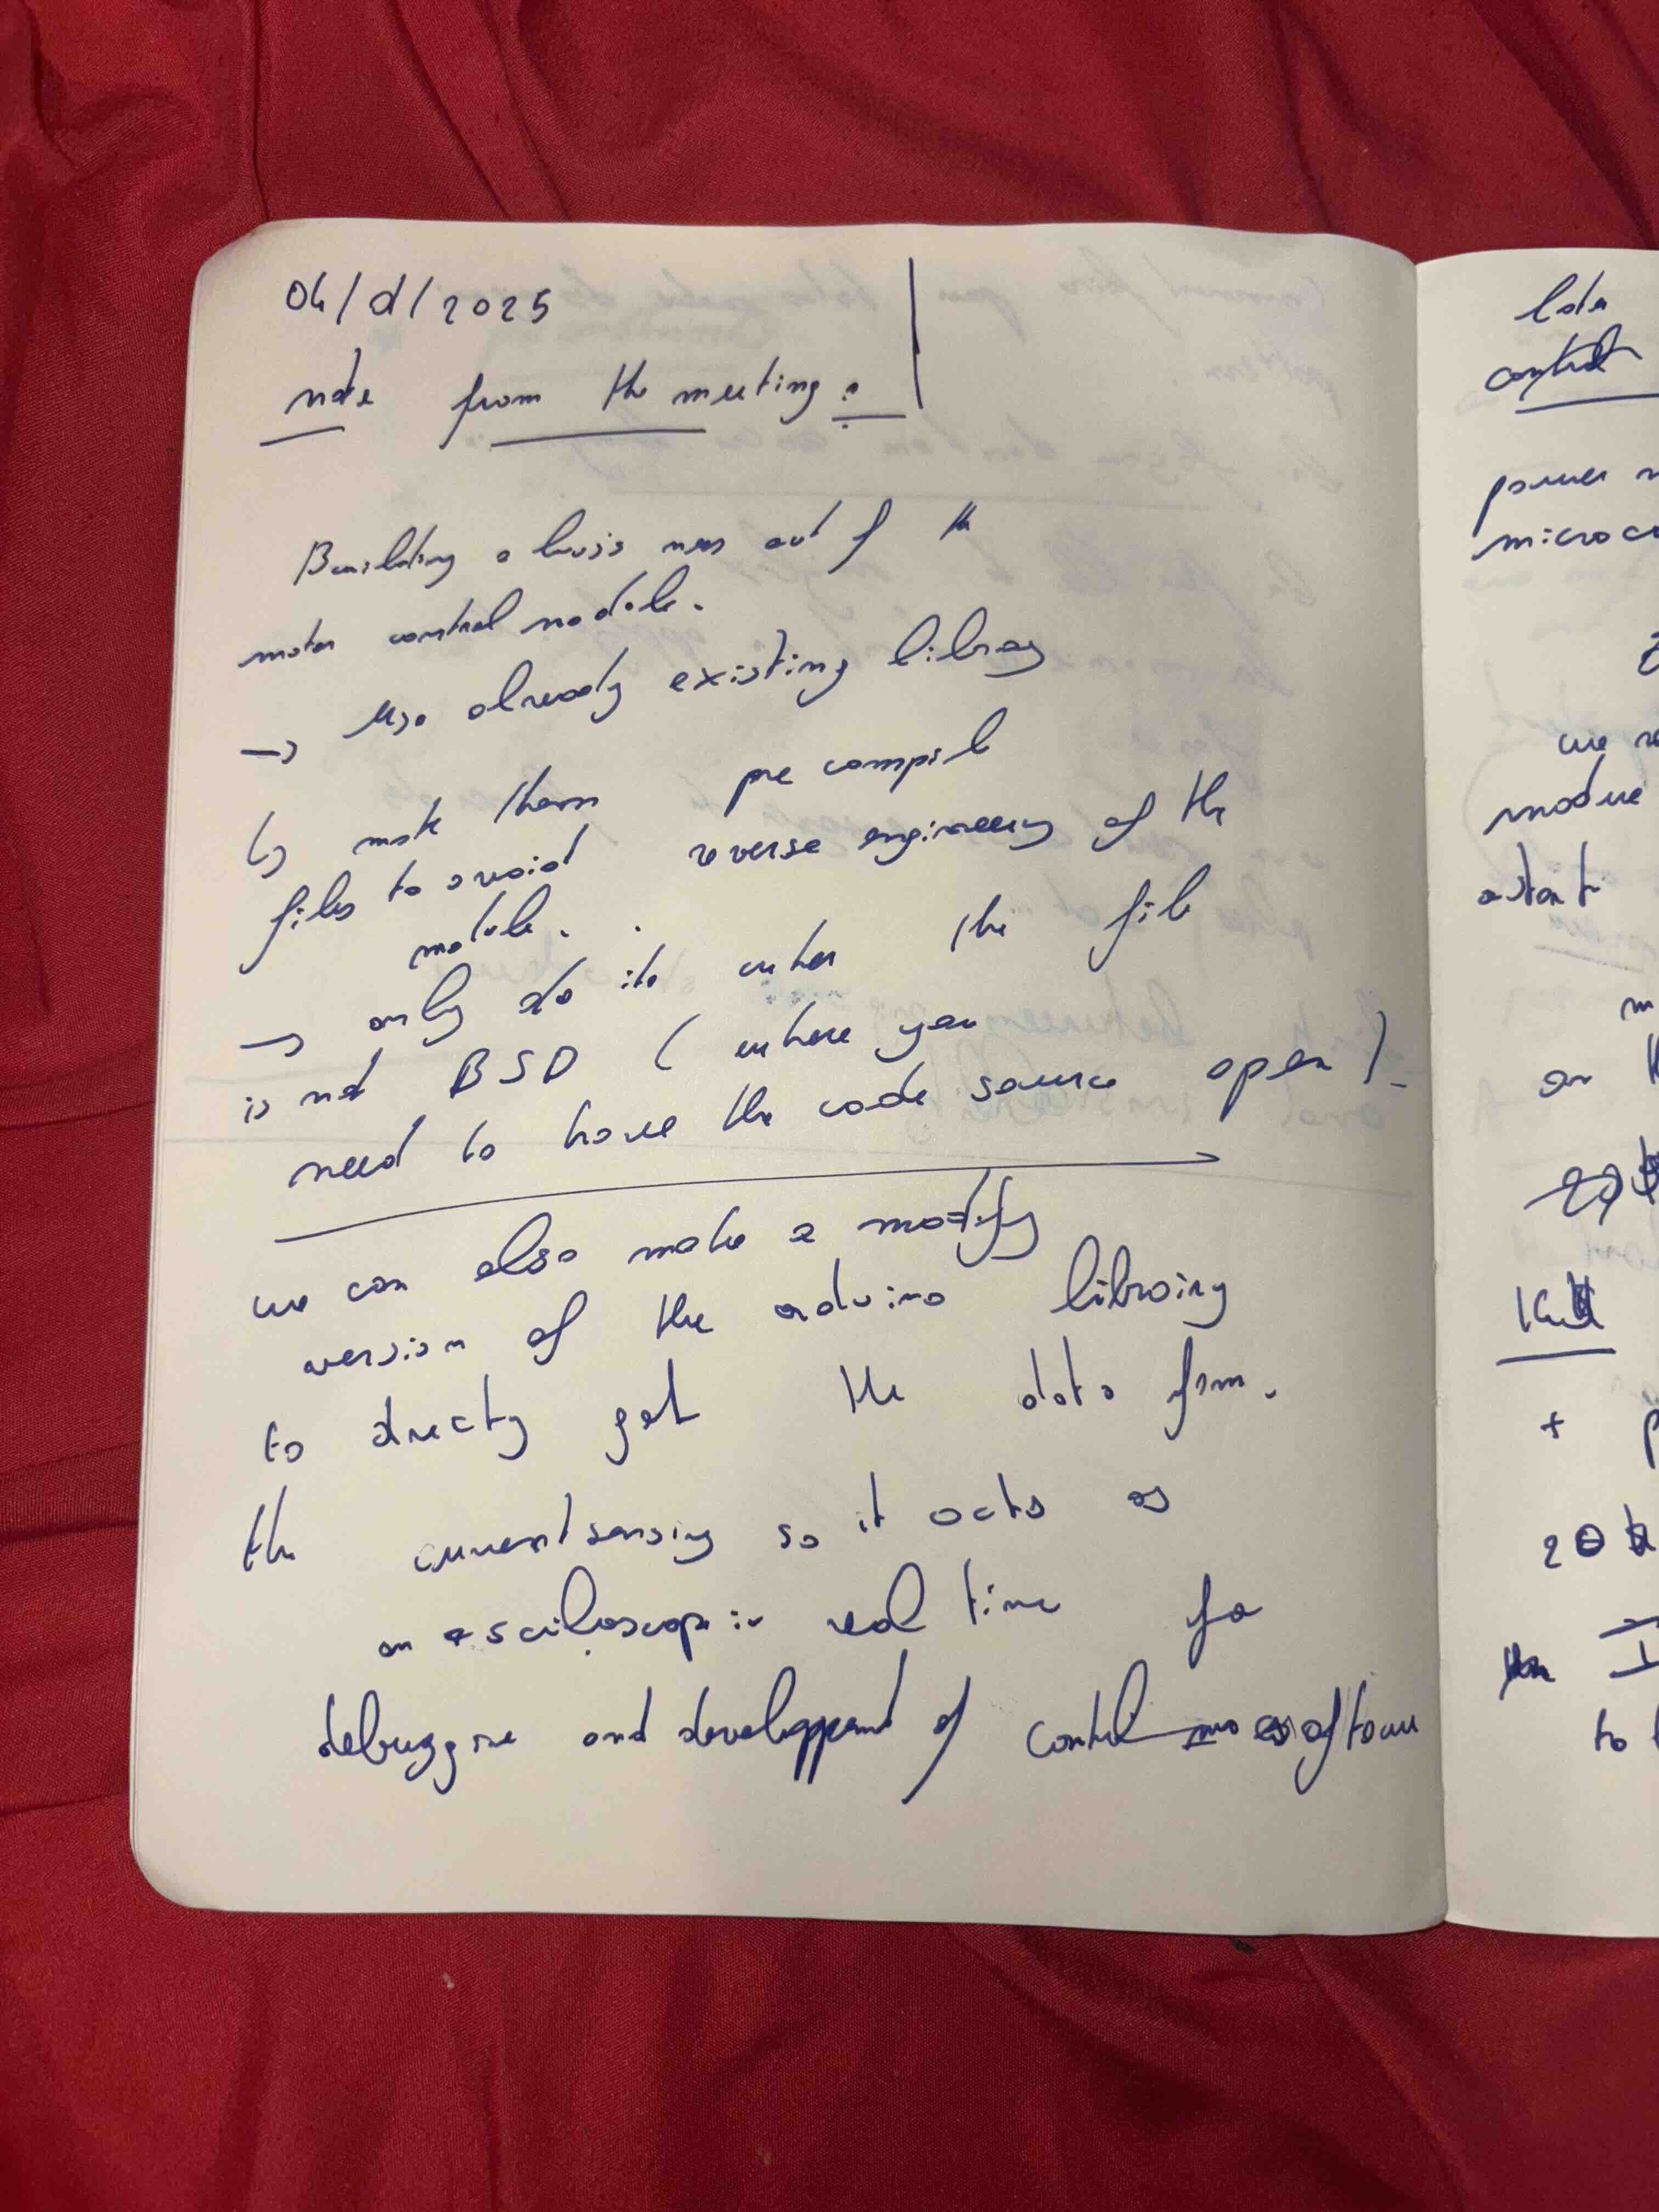 04/d/2025
note from the meeting :
Building a business out of the
motor control module.
→ use already existing library
↳ make them pre compile
files to avoid reverse engineering of the
module.
→ only do it when the file
is not BSD (where you
need to have the code source open).
we can also make a modify
version of the arduino library
to directly get the data from
the current sensing so it acts as
an osciloscope in real time for
debugging and development of control software
control
power
microco
we
module
on
20
+
to